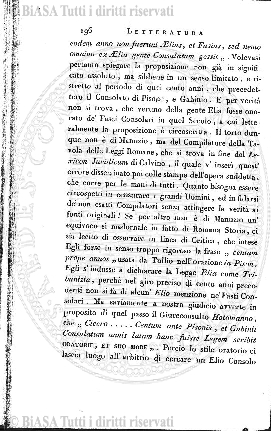 BIASA Studi, Ricerche e Documentazione
196 LETTERATURA
eodem anno non fuerunt Ælios, et Fusios, sed neminem
ex Ælia gente Consulatum gessit „. Volevasi
pertanto spiegare la proposizione non già in significato
assoluto, ma sibbene in un senso limitato, e ristretto
al periodo di que' cento anni, che precedettero
il Consolato di Pisone, e Gabinio. E per verità
non si trova, che veruno della gente Elia fosse onorato
de' Fasci Consolari in quel Secolo, a cui letteralmente
la proposizione è circoscritta. Il torto dunque
non è di Manuzio, ma del Compilatore della Tavola
delle Leggi Romane, che si trova in fine del Lexicon
Juridicum di Calvino, il quale v' inserì quest'
errore disseminato poi colle stampe dell'opera suddetta,
che corre per le mani di tutti. Quanto bisogna essere
circospetti in censurare i grandi Uomini, ed in fidarsi
de' non esatti Compilatori senza attingere la verità ai
fonti originali! Se per altro non è di Manuzio un'
equivoco sì madornale in fatto di Romana Storia, ci
sia lecito di osservare in linea di Critica, che intese
Egli forse in senso troppo rigoroso la frase „ centum
prope annos „ usata da Tullio nell'orazione in Pison.
Egli s'indusse a dichiarare la Legge Elia come Tribunizia,
perchè nel giro preciso di cento anni precedenti
non si fa di alcun' Elio menzione ne' Fasti Consolari.
Ma seriamente a nostro giudizio avverte in
proposito di quel passo il Giureconsulto Hotomanno,
che „ Cicero ..... Centum ante Pisonis, et Gabinii
Consulatum annis latam hanc fuisse Legem scribit
ORATORIE, ET SUO MORE „. Perciò lo stile oratorio ci
lascia luogo all'arbitrio di cercare un Elio Consolo
BIASA Studi, Ricerche e Documentazione